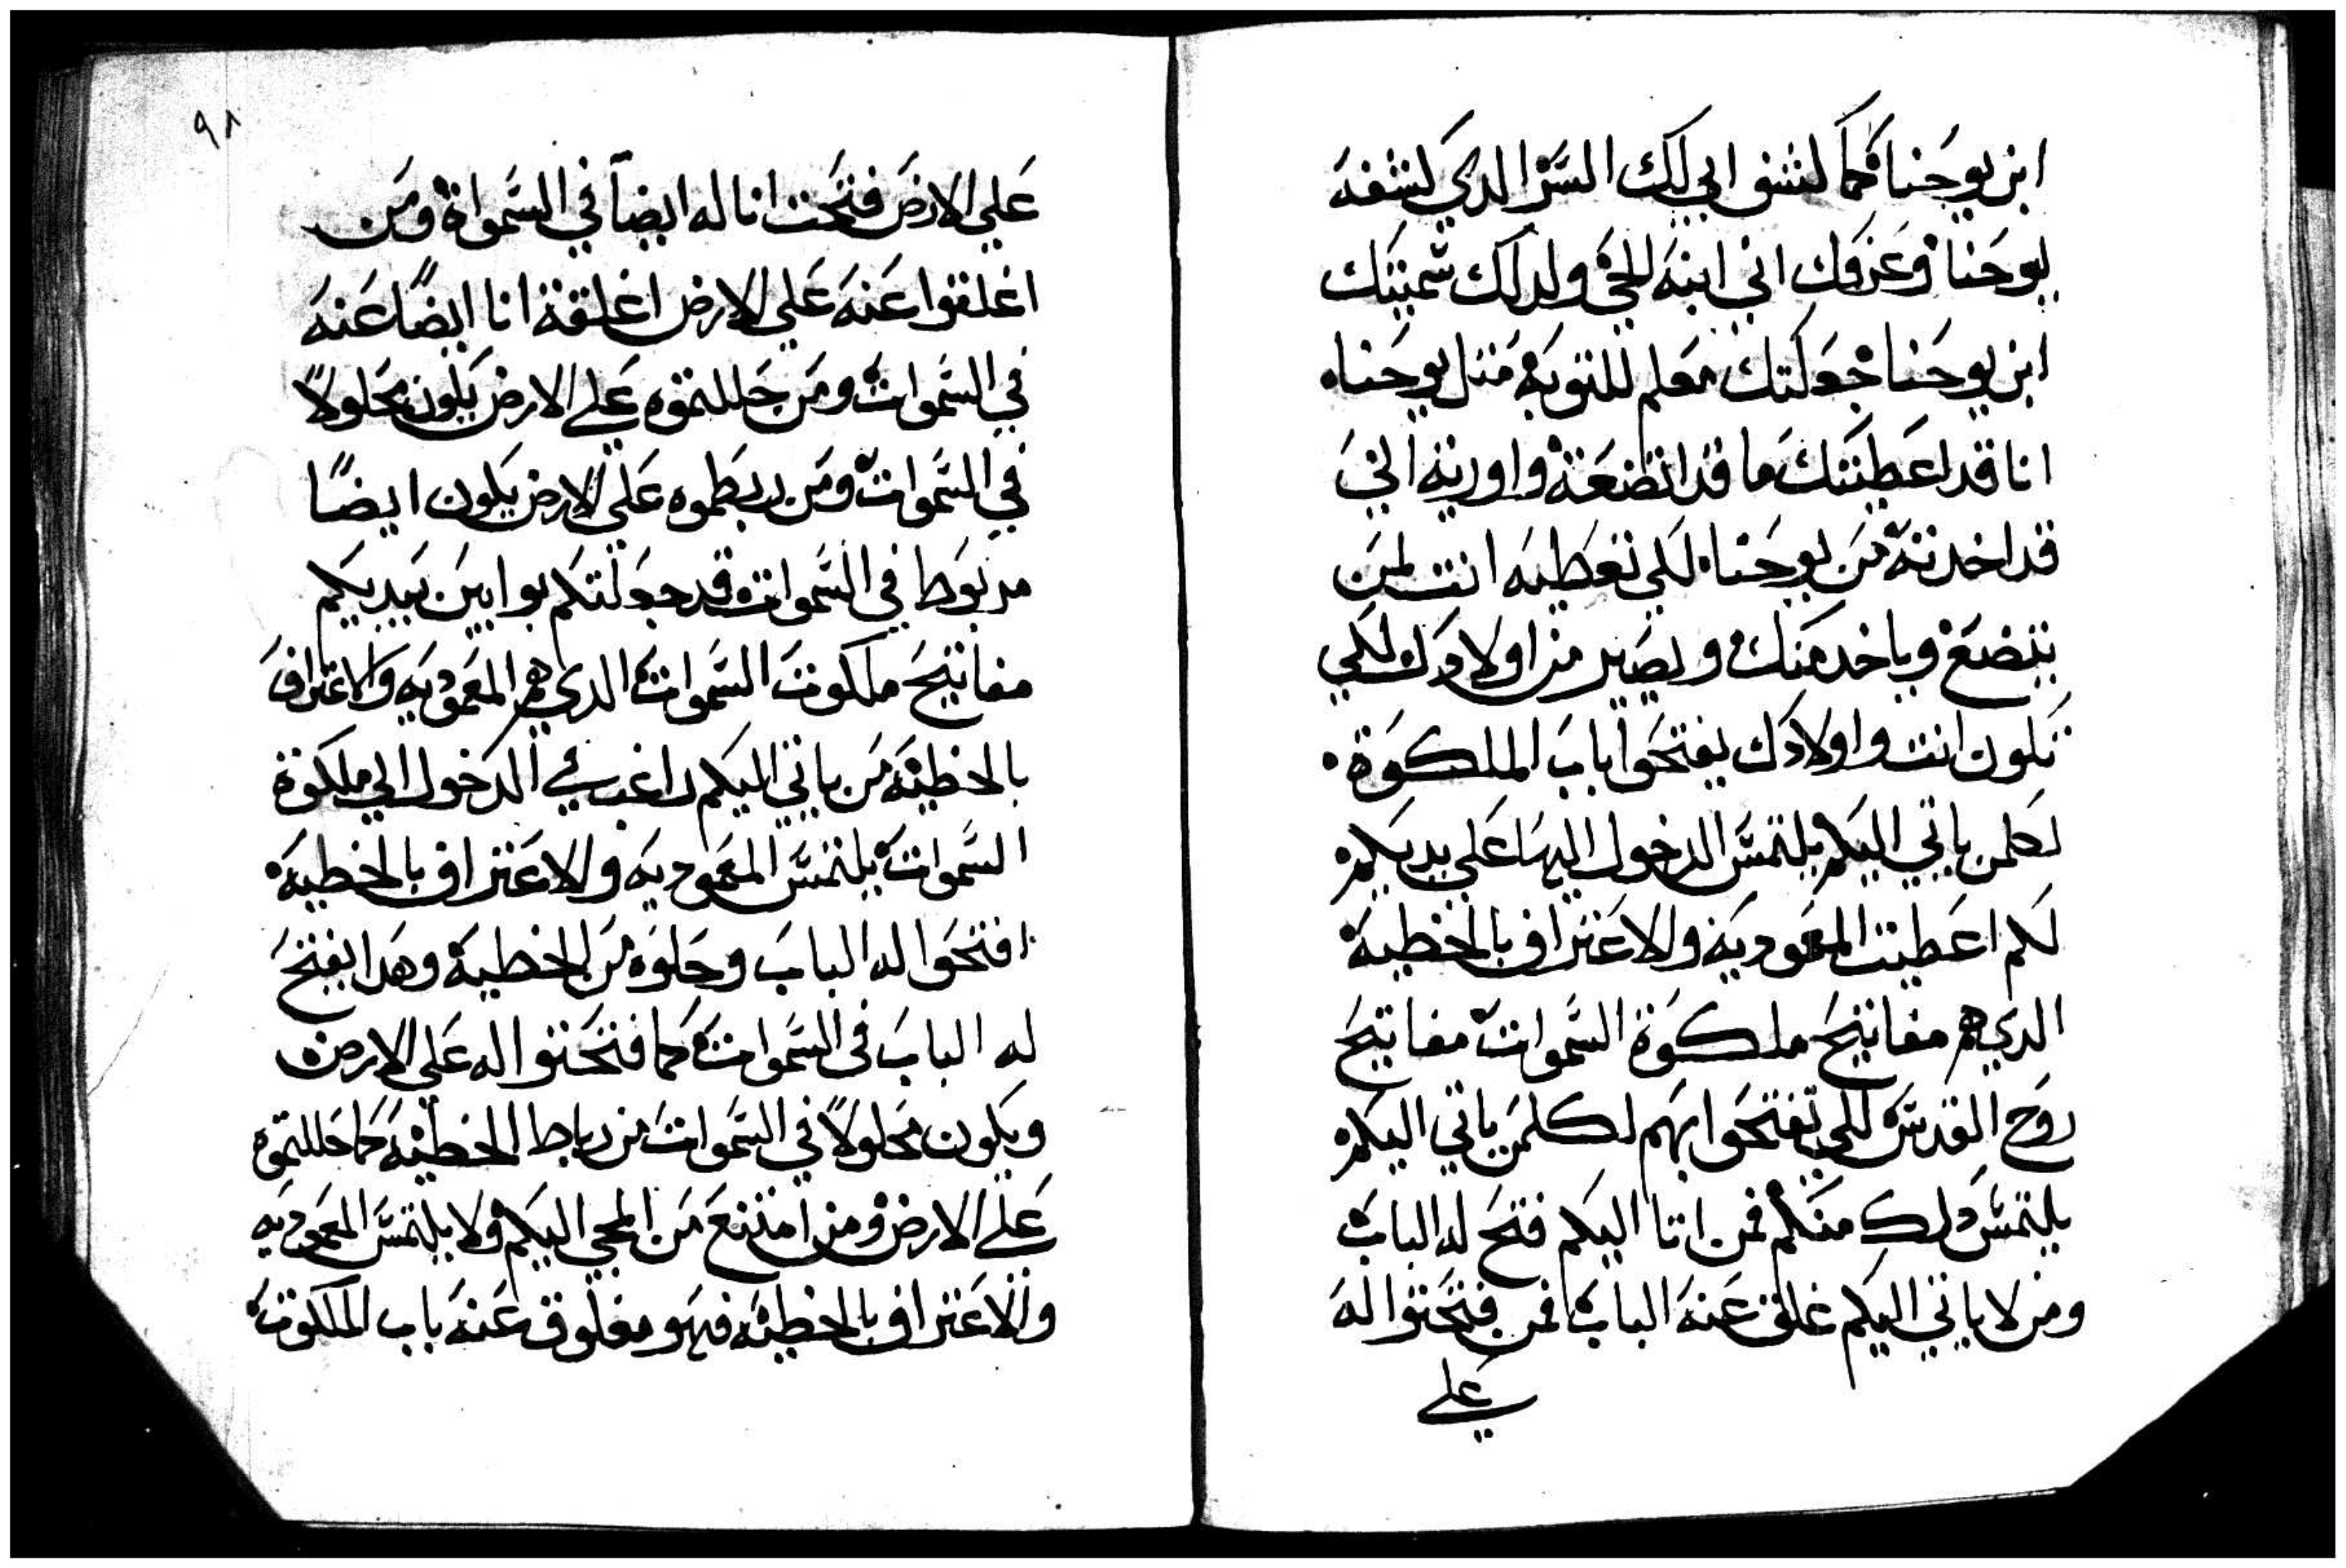 ابن يوحنا فكما كشف ابي لك السر الدي كشفه
ليوحنا وعرفك اني ابنه الحي ولدلك سميتك
ابن يوحنا جعلتك معلم للتوبه مثل يوحنا
انا قد اعطيتك ما قد اتضعت واوريته اني
قد اخدته من يوحنا لكي تعطيه انت لمن
يتضع وياخد منك ويصير من اولادك لكي
تكون انت واولادك يفتحوا باب الملكوة
لكلمن ياتي اليكم يلتمس الدخول اليها علي يديكم
لكم اعطيت المعموديه والاعتراف بالخطية
الدي هم مفاتيح ملكوة السموات مفاتيح
روح القدس لكي تفتحوا بهم لكلمن ياتي اليكم
يلتمس دلك منكم فمن اتا اليكم فتح له الباب
ومن لا ياتي اليكم غلق عنه الباب فمن فتحتوا له
علي
٩٨
علي الارض فتحت انا له ايضاً في السمواة ومن
اغلقوا عنه علي الارض اغلقة انا ايضاً عنه
في السموات ومن حللتموه علي الارض يكون محلولاً
في السموات ومن ربطموه علي الارض يكون ايضاً
مربوطا في السموات قد جعلتكم بوابين بيديكم
مفاتيح ملكوت السموات الدي هم المعموديه والاعتراف
بالخطيه من ياتي اليكم راغب في الدخول الي ملكوة
السموات يلتمس المعموديه والاعتراف بالخطيه
افتحوا له الباب وحلوه من الخطية وهدا يفتح
له الباب في السموات كما فتحتوا له علي الارض
ويكون محلولاً في السموات من رباط الخطيه كما حللتموه
علي الارض ومن امتنع من المجي اليكم ولا يلتمس المعموديه
والاعتراف بالخطيه فهو مغلوق عنه باب الملكوت